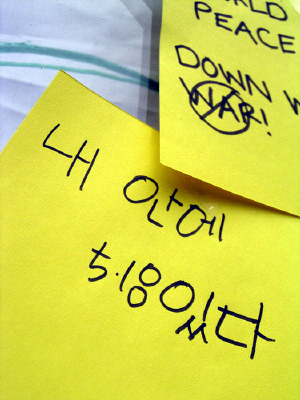 RLD
PEACE
DOWN W
WAR!
내 안에
5.18있다